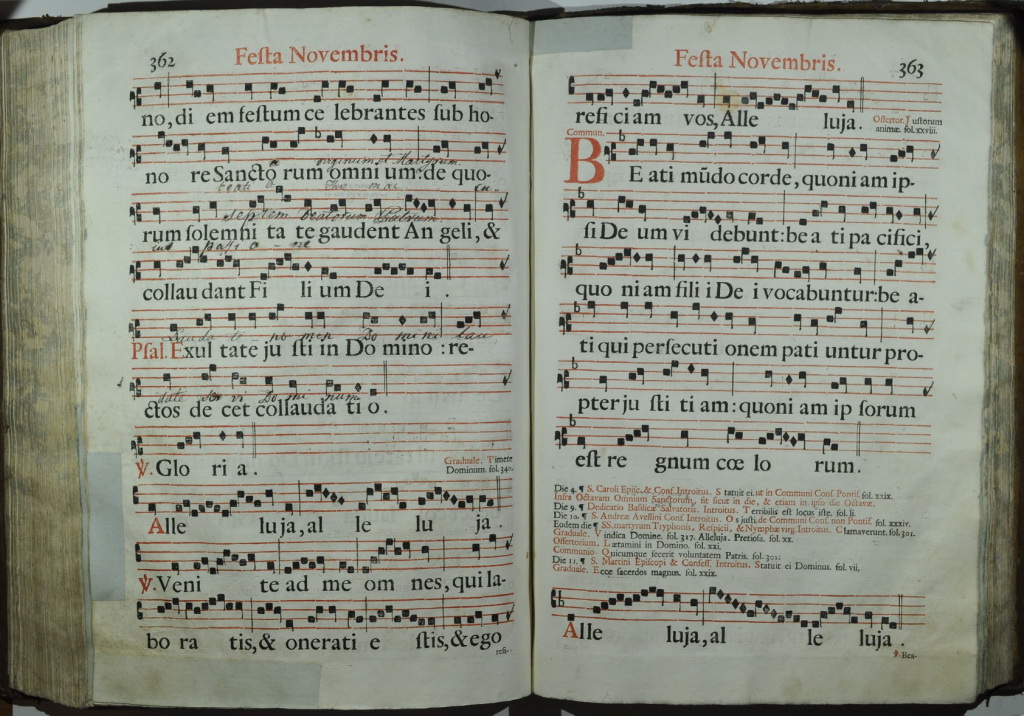 362
Festa Novembris.
no, di em festum ce lebrantes sub ho-
virginum et Martyrum
no re Sancto rum omni um: de quo-
beati
septem beatorum Patrum
rum solemni ta te gaudent An geli, &
passi o ne
collau dant Fi li um De i .
Lauda te no men Do mi ni lau
Psal. Exul tate ju sti in Do mino : re-
date ser vi Do mi num
ctos de cet collauda ti o .
℣. Glo ri a .
Graduale. Timete
Dominum. fol. 340.
Alle lu ja, al le lu ja .
℣. Veni te ad me om nes, qui la-
bo ra tis, & onerati e stis, & ego
refi-
Festa Novembris.
363
refi ci am vos, Alle lu ja.
Offertor. Justorum
animæ. fol. xxviii.
Commun.
B E ati mūdo corde, quoni am ip-
si De um vi debunt: be a ti pa cifici,
quo ni am fili i De i vocabuntur: be a-
ti qui persecuti onem pati untur pro-
pter ju sti ti am: quoni am ip sorum
est re gnum cœ lo rum.
Die 4. ¶ S. Caroli Episc. & Conf. Introitus. Statuit ei. ut in Communi Conf. Pontif. fol. xxix.
Infra Octavam Omnium Sanctorum, fit sicut in die, & etiam in ipso die Octavæ.
Die 9. ¶ Dedicatio Basilicæ Salvatoris. Introitus. Terribilis est locus iste. fol. li.
Die 10. ¶ S. Andreæ Avellini Conf. Introitus. Os justi, de Communi Conf. non Pontif. fol. xxxiv.
Eodem die ¶ SS. martyrum Tryphonis, Respicii, & Nymphæ virg. Introitus. Clamaverunt. fol. 301.
Graduale. Vindica Domine. fol. 317. Alleluja. Pretiosa. fol. xx.
Offertorium. Lætamini in Domino. fol. xxi.
Communio. Quicumque fecerit voluntatem Patris. fol. 302.
Die 11. ¶ S. Martini Episcopi & Confess. Introitus. Statuit ei Dominus. fol. vii.
Graduale. Ecce sacerdos magnus. fol. xxix.
Alle luja, al le luja .
℣. Bea-